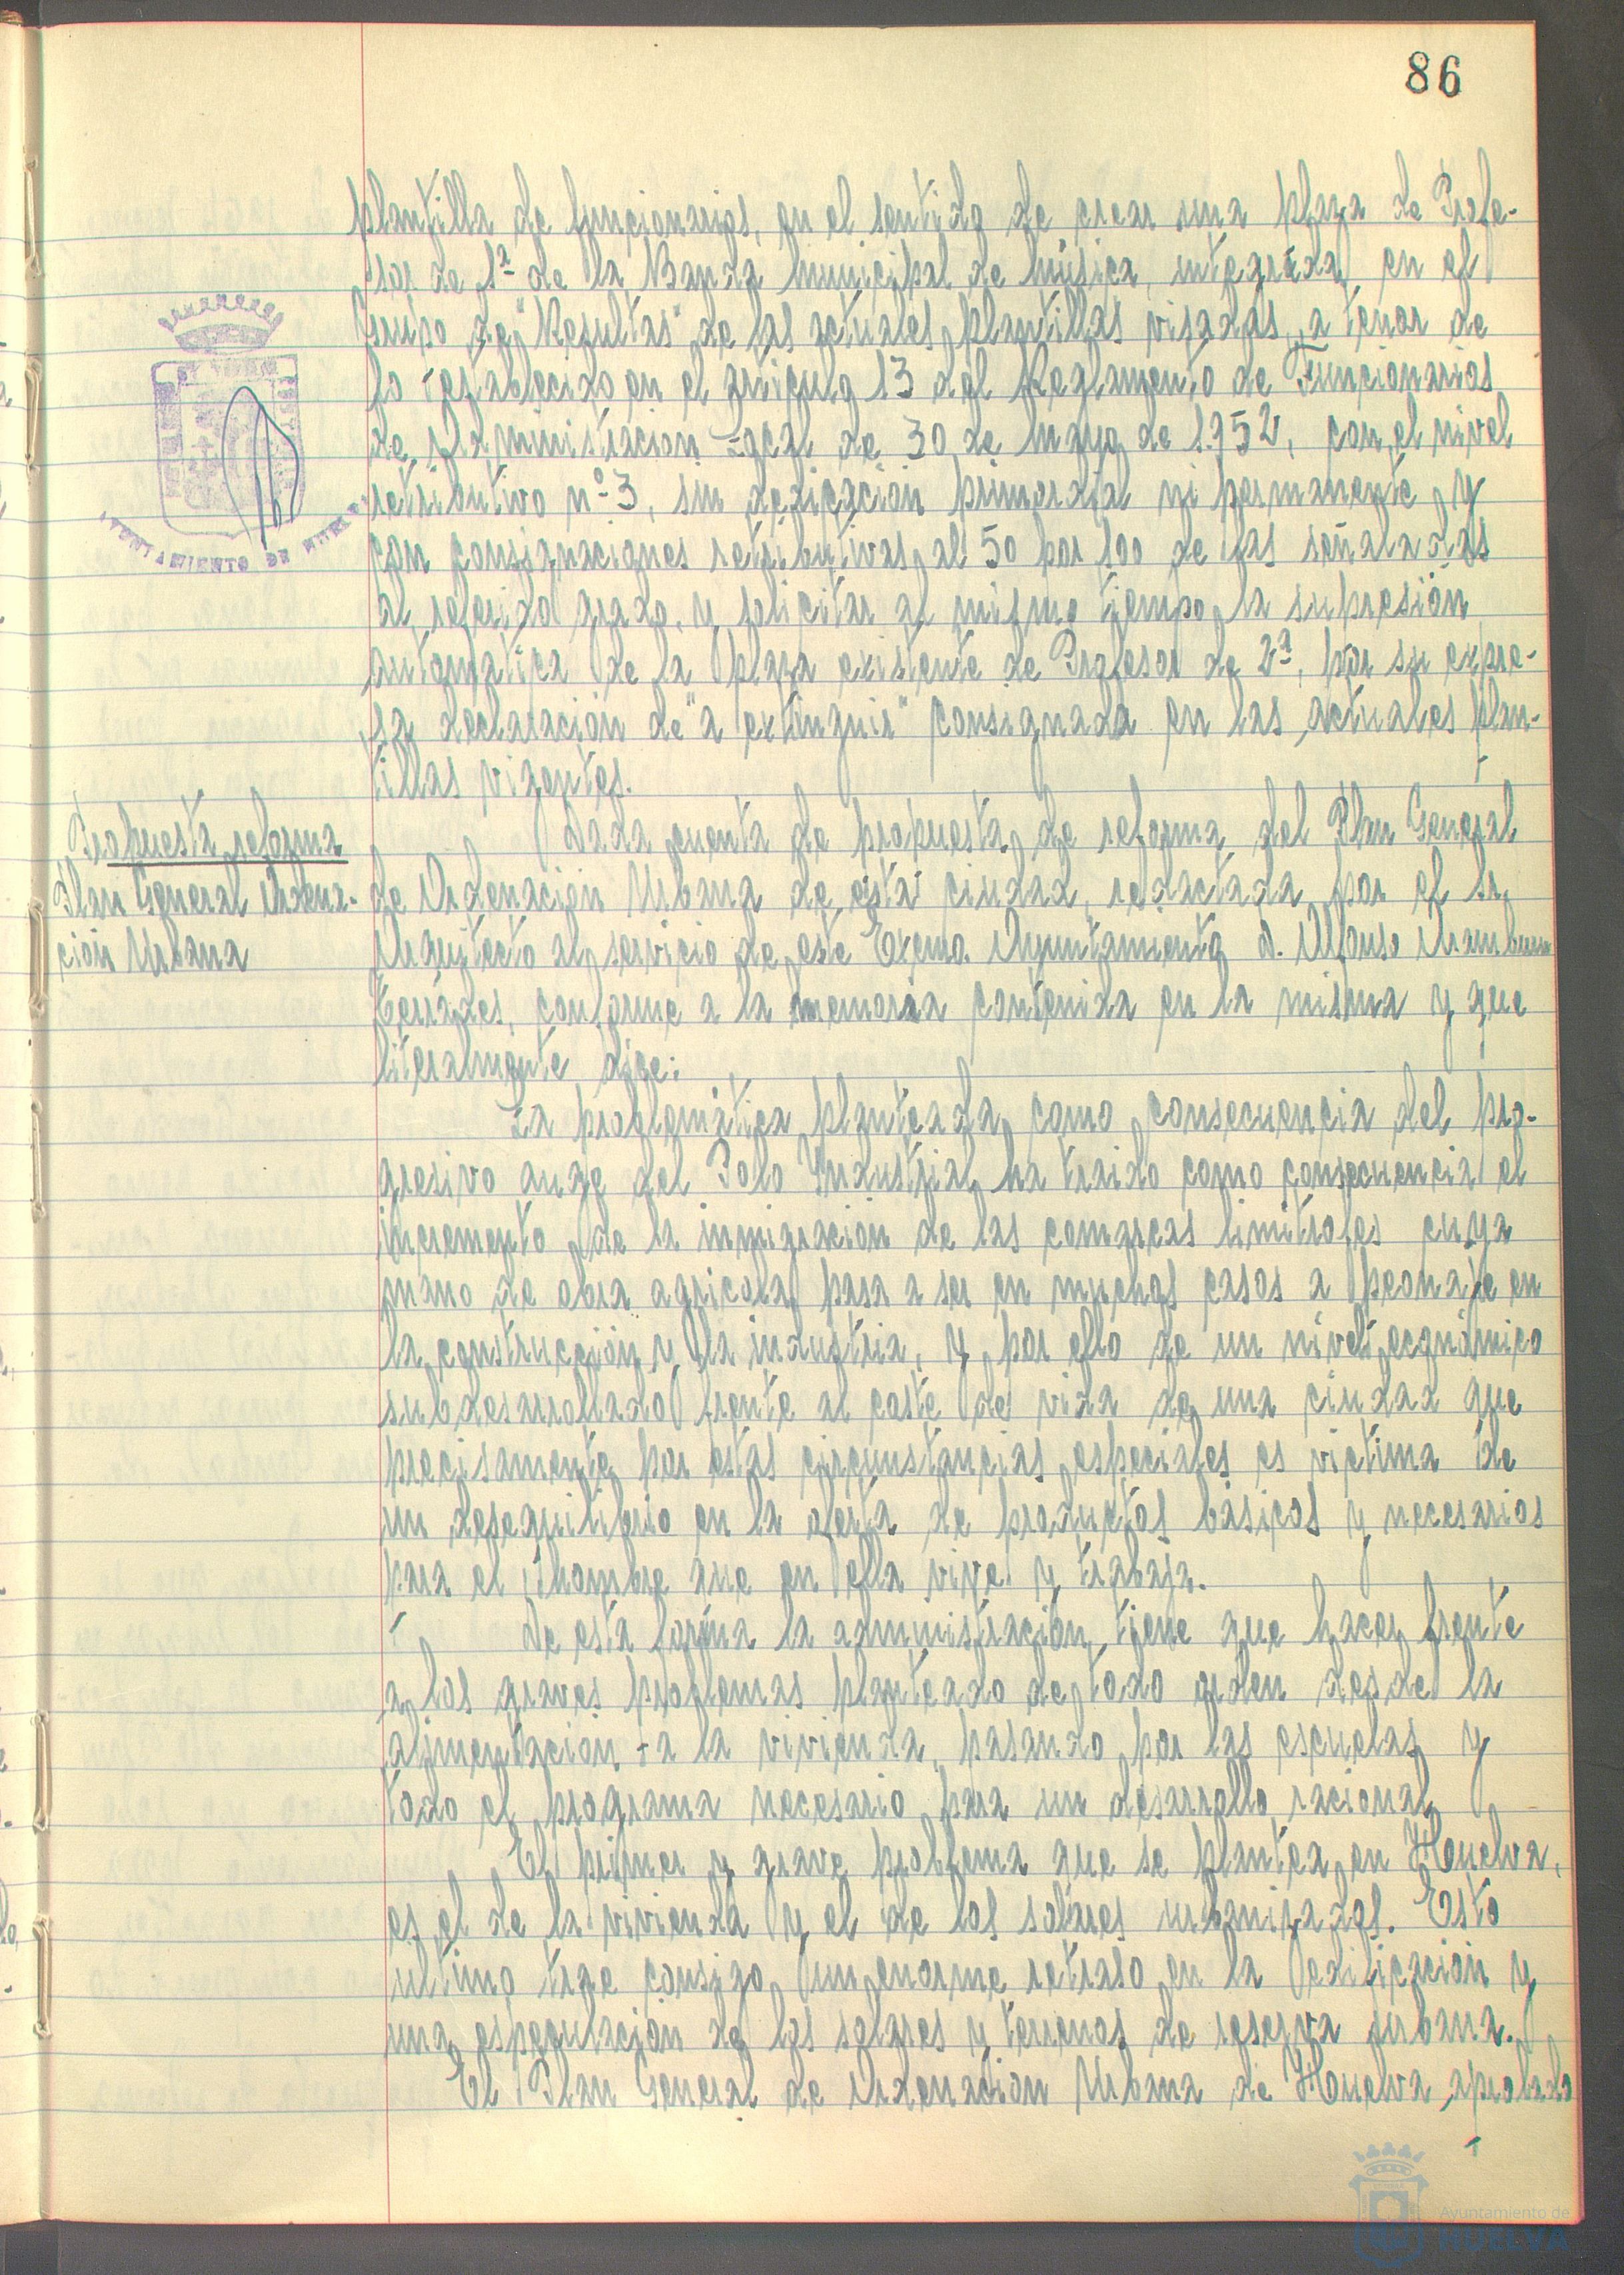 86
plantilla de funcionarios, en el sentido de crear una plaza de Profe-
sor de 1ª de la Banda municipal de música, integrada en el
Grupo de "Resultas" de las actuales plantillas visadas, a tenor de
lo establecido en el artículo 13 del Reglamento de Funcionarios
de Administración Local de 30 de mayo de 1.952, con el nivel
retributivo nº 3, sin dedicación primordial ni permanente y
con consignaciones retributivas al 50 por 100 de las señaladas
al referido grado, y solicitar al mismo tiempo la supresión
automática de la plaza existente de Profesor de 2ª, por su expre-
sa declaración de "a extinguir" consignada en las actuales plan-
tillas vigentes.
AYUNTAMIENTO DE HUELVA
Propuesta reforma
Plan General Ordena-
ción Urbana
Dada cuenta de propuesta de reforma del Plan General
de Ordenación Urbana de esta ciudad, redactada por el Sr.
Arquitecto al servicio de este Excmo. Ayuntamiento D. Alfonso Aramburu
Terrades, conforme a la memoria contenida en la misma y que
literalmente dice:
La problemática planteada como consecuencia del pro-
gresivo auge del Polo Industrial ha traido como consecuencia el
incremento de la inmigración de las comarcas limitrofes cuya
mano de obra agricola pasa a ser en muchos casos a peonaje en
la construcción y la industria, y por ello de un nivel económico
subdesarrollado frente al coste de vida de una ciudad que
precisamente por estas circunstancias especiales es victima de
un desequilibrio en la oferta de productos básicos y necesarios
para el hombre que en ella vive y trabaja.
De esta forma la administración tiene que hacer frente
a los graves problemas planteado de todo orden desde la
alimentación a la vivienda, pasando por las escuelas y
todo el programa necesario para un desarrollo racional
El primer y grave problema que se plantea en Huelva,
es el de la vivienda y el de los solares urbanizados. Esto
ultimo trae consigo un enorme retraso en la edificación y
una especulación de los solares y terrenos de reserva urbana.
El Plan General de Ordenación Urbana de Huelva, aprobado
Ayuntamiento de
HUELVA